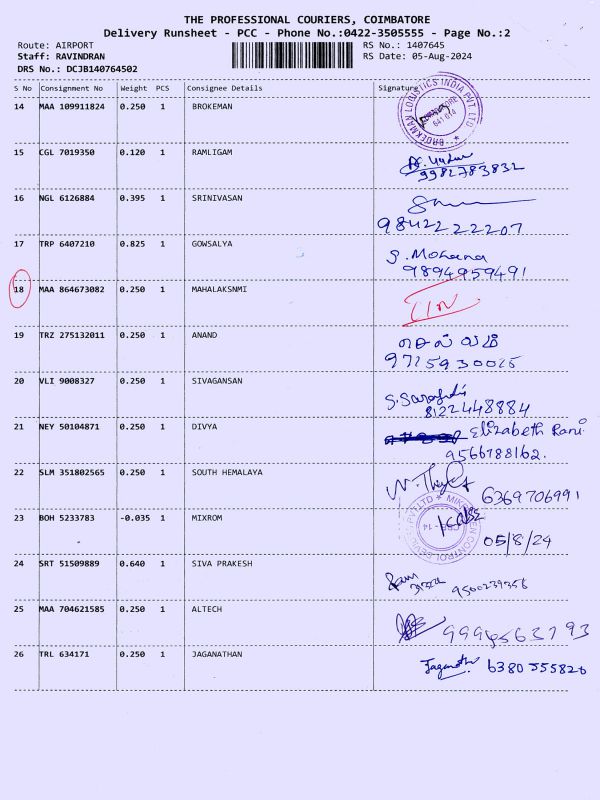 THE PROFESSIONAL COURIERS, COIMBATORE
Delivery Runsheet - PCC - Phone No.:0422-3505555 - Page No.:2
Route: AIRPORT RS No.: 1407645
Staff: RAVINDRAN RS Date: 05-Aug-2024
DRS No.: DCJB140764502
S No Consignment No Weight PCS Consignee Details Signature
14 MAA 109911824 0.250 1 BROKEMAN
BROEKMAN LOGISTICS INDIA PVT. LTD
641 014
15 CGL 7019350 0.120 1 RAMLIGAM
9982783832
16 NGL 6126884 0.395 1 SRINIVASAN
9842222207
17 TRP 6407210 0.825 1 GOWSALYA S. Mohana
9894959491
18 MAA 864673082 0.250 1 MAHALAKSNMI
19 TRZ 275132011 0.250 1 ANAND செல்வம்
9715930025
20 VLI 9008327 0.250 1 SIVAGANSAN
8122448884
21 NEY 50104871 0.250 1 DIVYA Elizabeth Rani
9566788162.
22 SLM 351802565 0.250 1 SOUTH HEMALAYA
6369706991
23 BOH 5233783 -0.035 1 MIXROM
05/8/24
24 SRT 51509889 0.640 1 SIVA PRAKESH
9500239356
25 MAA 704621585 0.250 1 ALTECH
26 TRL 634171 0.250 1 JAGANATHAN Jaganath 6380555826